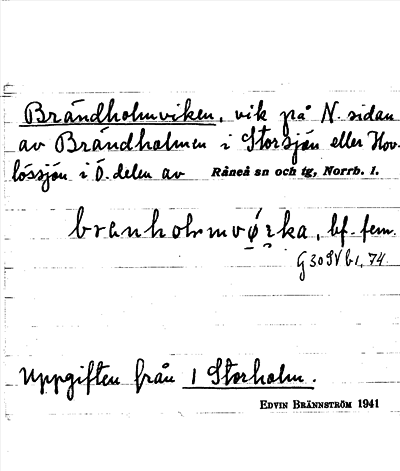 Brändholmviken, vik på N. sidan
av Brändholmen i Storsjön eller Hov-
lössjön i Ö. delen av Råneå sn och tg, Norrb. l.
branholmvørka, bf. fem.
G 30 SV b1, 74
Uppgiften från 1 Storholm.
EDVIN BRÄNNSTRÖM 1941